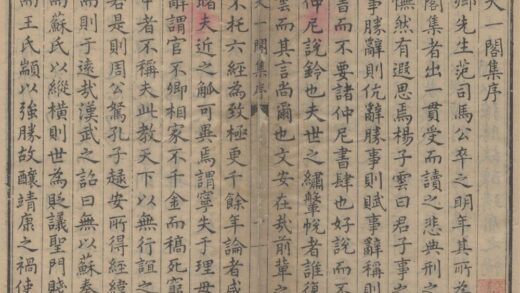 天一閣集序
鄉先生范司馬公卒之明年其所為
閣集者出一貫受而讀之悲典刑之
憮然有遐思焉楊子雲曰君子事
事勝辭則伉辭勝事則賦事辭稱則
書而不要諸仲尼書肆也好說而不
仲尼說鈴也夫世之繡鞶帨者誰復
雲而其言尚爾也文安在哉前輩之
天一閣集序
不托六經為致極更千餘年論者咸
睹夫近之觚可再焉謂寧失于理毋
辭謂官不卿相家不千金而稿死窮
中者不稱夫此教天下以無行誼之
若是則周公騖孔子趨安所得經緯
而則于遠哉漢武之詔曰無以蘇秦
而蘇氏以縱橫則世為貶議聖門賤
而王氏顓以強勝故釀靖康之禍使